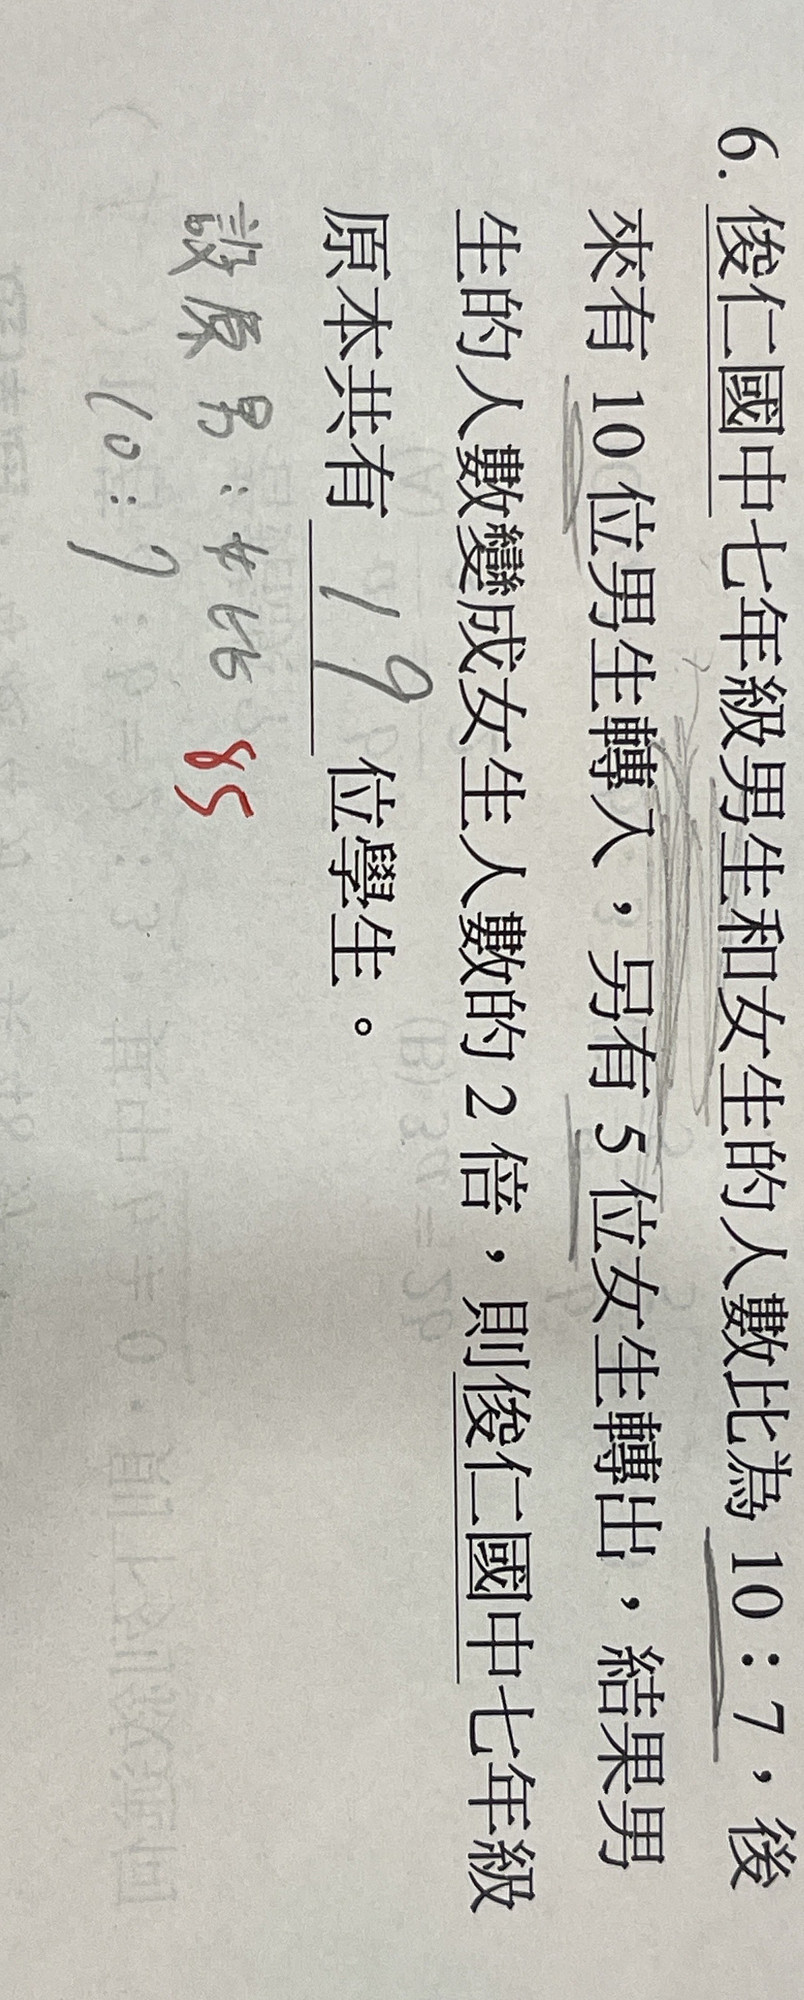 6. 俊仁國中七年級男生和女生的人數比為 10：7，後
來有 10 位男生轉入，另有 5 位女生轉出，結果男
生的人數變成女生人數的 2 倍，則俊仁國中七年級
原本共有 19 位學生。
設原男：女比 85
10：7